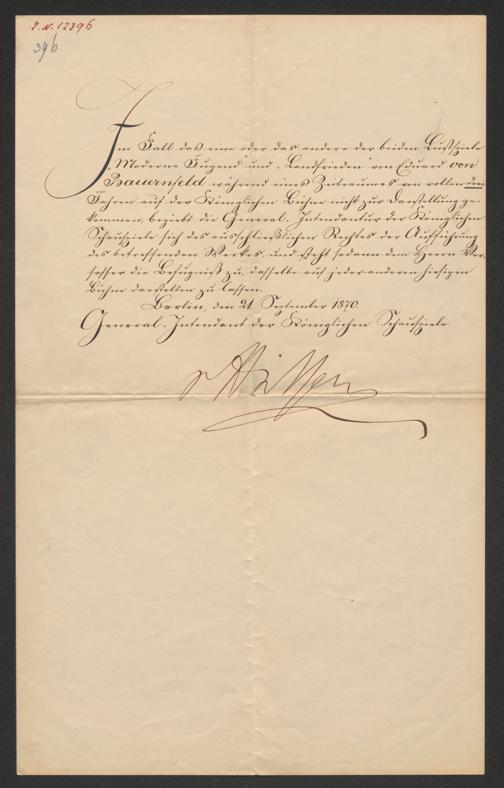 I. N. 12396
396
Im Fall das eine oder das andere der beiden Lustspiele
"Moderne Jugend" und "Landfrieden" von Eduard von
Bauernfeld während eines Zeitraumes von vollen drei
Jahren auf der Königlichen Bühne nicht zur Darstellung ge-
kommen, begiebt die General-Intendantur der Königlichen
Schauspiele sich des ausschließlichen Rechtes der Aufführung
des betreffenden Werkes, und steht sodann dem Herrn Ver-
fasser die Befugniß zu, dasselbe auf jeder anderen hiesigen
Bühne darstellen zu lassen.
Berlin, den 21. September 1870.
General-Intendant der Königlichen Schauspiele.
v Hülsen